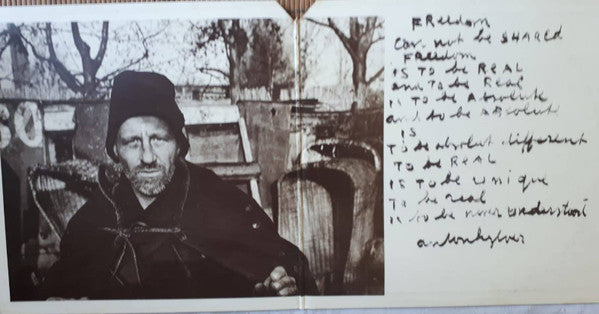 60
FReedom
Can not be SHARED
FReedom
IS TO be REAL
and To be Real
IS TO be Absolute
and to be Absolute
IS
To be absolut different
TO be REAL
IS TO be unique
To be real
is to be never understoot